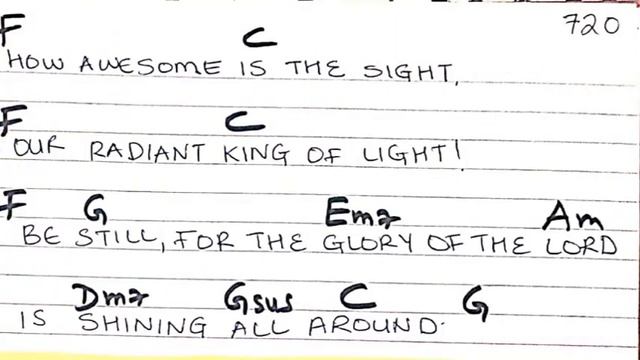 720
F C
HOW AWESOME IS THE SIGHT,
F C
OUR RADIANT KING OF LIGHT!
F G Em7 Am
BE STILL, FOR THE GLORY OF THE LORD
Dm7 Gsus C G
IS SHINING ALL AROUND.